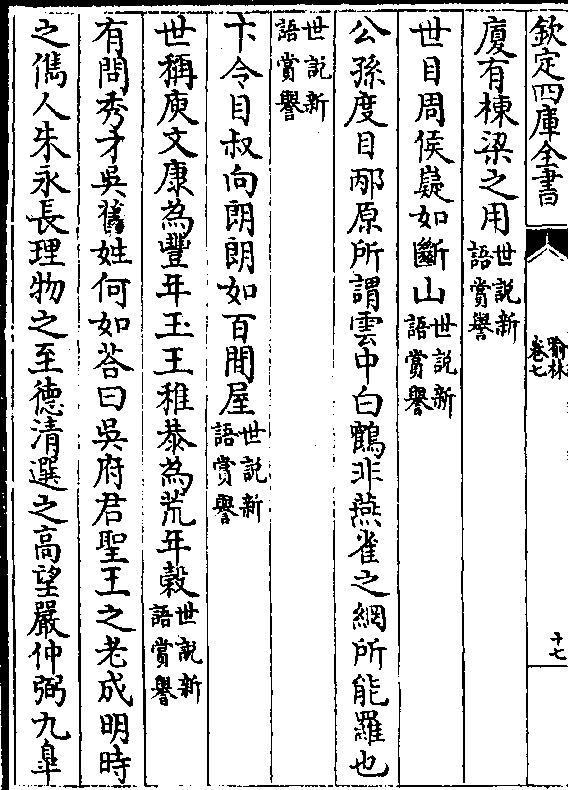 欽定四庫全書
喻林
卷七
十七
廈有棟梁之用世說新語賞譽
世目周侯嶷如斷山世說新語賞譽
公孫度目邴原所謂雲中白鶴非燕雀之網所能羅也
世說新語賞譽
卞令目叔向朗朗如百間屋世說新語賞譽
世稱庾文康為豐年玉王稚恭為荒年穀世說新語賞譽
有問秀才吳舊姓何如荅曰吳府君聖王之老成明時
之儁人朱永長理物之至德清選之高望嚴仲弼九臯